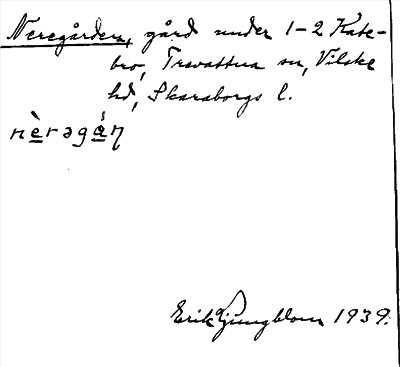 Neregården, gård under 1-2 Kate-
bro, Trevattna sn, Vilske
hd, Skaraborgs l.
nè̱rəgá̱ŋ
Erik Ljungblom 1939.